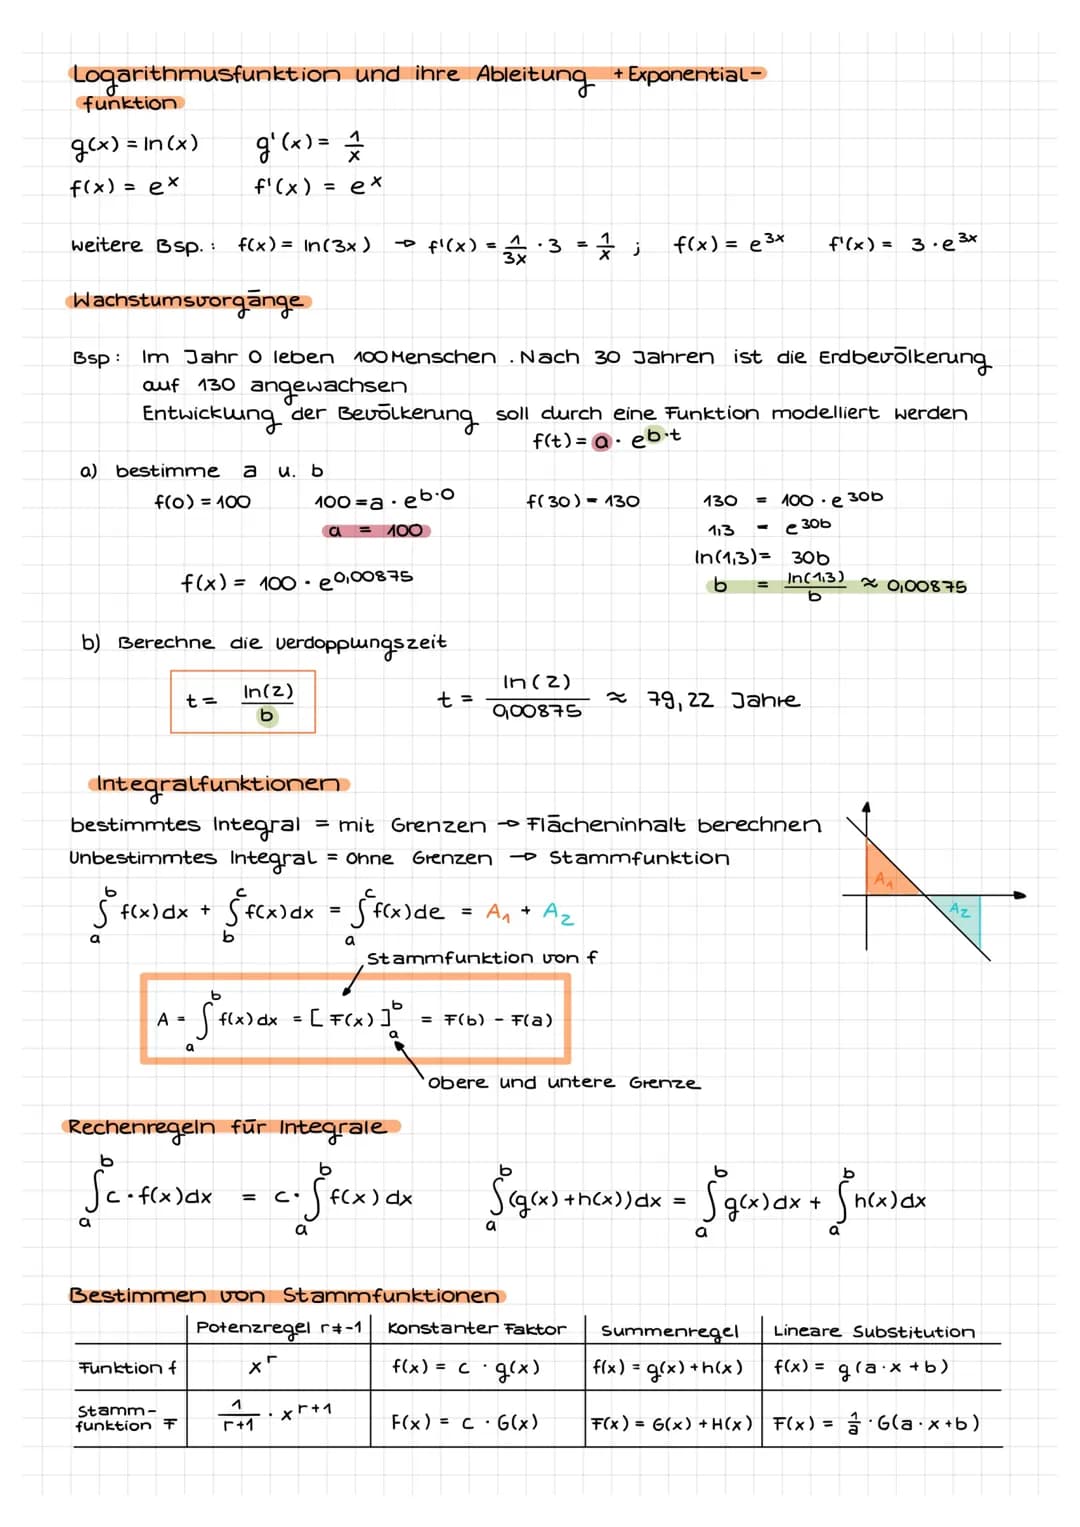 Logarithmusfunktion und ihre Ableitung + Exponential-
funktion
g(x) = ln(x) g'(x) = 1/x
f(x) = e^x f'(x) = e^x
weitere Bsp. : f(x) = ln(3x) → f'(x) = 1/3x · 3 = 1/x ; f(x) = e^3x f'(x) = 3 · e^3x
Wachstumsvorgänge
Bsp : Im Jahr 0 leben 100 Menschen . Nach 30 Jahren ist die Erdbevölkerung
auf 130 angewachsen
Entwicklung der Bevölkerung soll durch eine Funktion modelliert werden
f(t) = a · e^b·t
a) bestimme a u. b
f(0) = 100 100 = a · e^b·0 f(30) = 130 130 = 100 · e^30b
a = 100 1,3 = e^30b
ln(1,3) = 30b
f(x) = 100 · e^0,00875 b = ln(1,3)/b ≈ 0,00875
b) Berechne die Verdopplungszeit
t = ln(2)/b t = ln(2)/0,00875 ≈ 79,22 Jahre
Integralfunktionen
bestimmtes Integral = mit Grenzen → Flächeninhalt berechnen
Unbestimmtes Integral = ohne Grenzen → Stammfunktion
∫_a^b f(x)dx + ∫_b^c f(x)dx = ∫_a^c f(x)de = A₁ + A₂
A₁
A₂
Stammfunktion von f
A = ∫_a^b f(x)dx = [F(x)]_a^b = F(b) - F(a)
obere und untere Grenze
Rechenregeln für Integrale
∫_a^b c · f(x)dx = c · ∫_a^b f(x)dx ∫_a^b (g(x) + h(x))dx = ∫_a^b g(x)dx + ∫_a^b h(x)dx
Bestimmen von Stammfunktionen
Potenzregel r≠-1 Konstanter Faktor Summenregel Lineare Substitution
Funktion f x^r f(x) = c · g(x) f(x) = g(x) + h(x) f(x) = g(a·x + b)
Stamm-
funktion F 1/r+1 · x^r+1 F(x) = c · G(x) F(x) = G(x) + H(x) F(x) = 1/a · G(a·x + b)